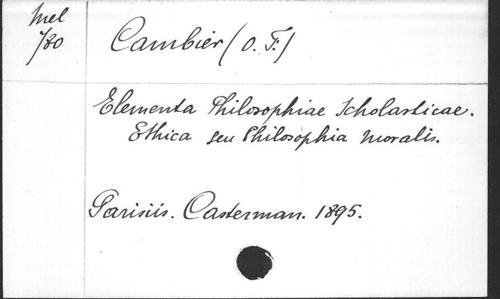 Mel
/80
Cambier (O. F.)
Elementa Philosophiae Scholasticae.
Ethica seu Philosophia moralis.
Parisiis. Casterman. 1895.